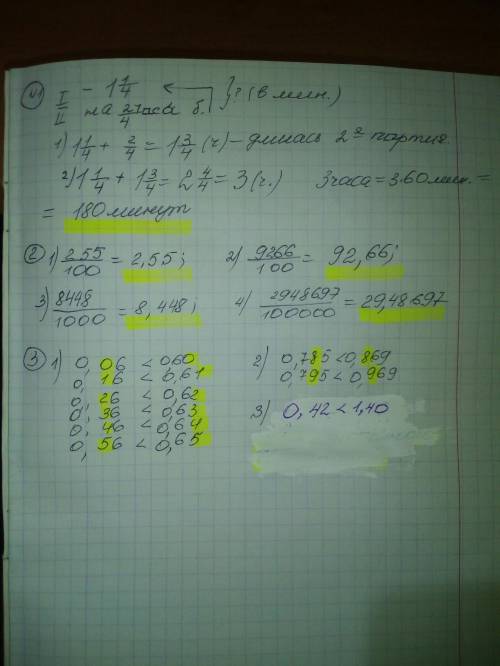 №1 I - 1 1/4
II на 2/4 часа б. } ? (в мин.)
1) 1 1/4 + 2/4 = 1 3/4 (ч) - длилась 2ая партия.
2) 1 1/4 + 1 3/4 = 2 4/4 = 3 (ч.) 3 часа = 3·60 мин. =
= 180 минут
② 1) 255/100 = 2,55; 2) 9266/100 = 92,66;
3) 8448/1000 = 8,448; 4) 2948697/100000 = 29,48697
③ 1) 0,06 < 060 2) 0,785 < 0,869
0,16 < 0,61 0,795 < 0,969
0,26 < 0,62
0,36 < 0,63 3) 0,42 < 1,40
0,46 < 0,64
0,56 < 0,65